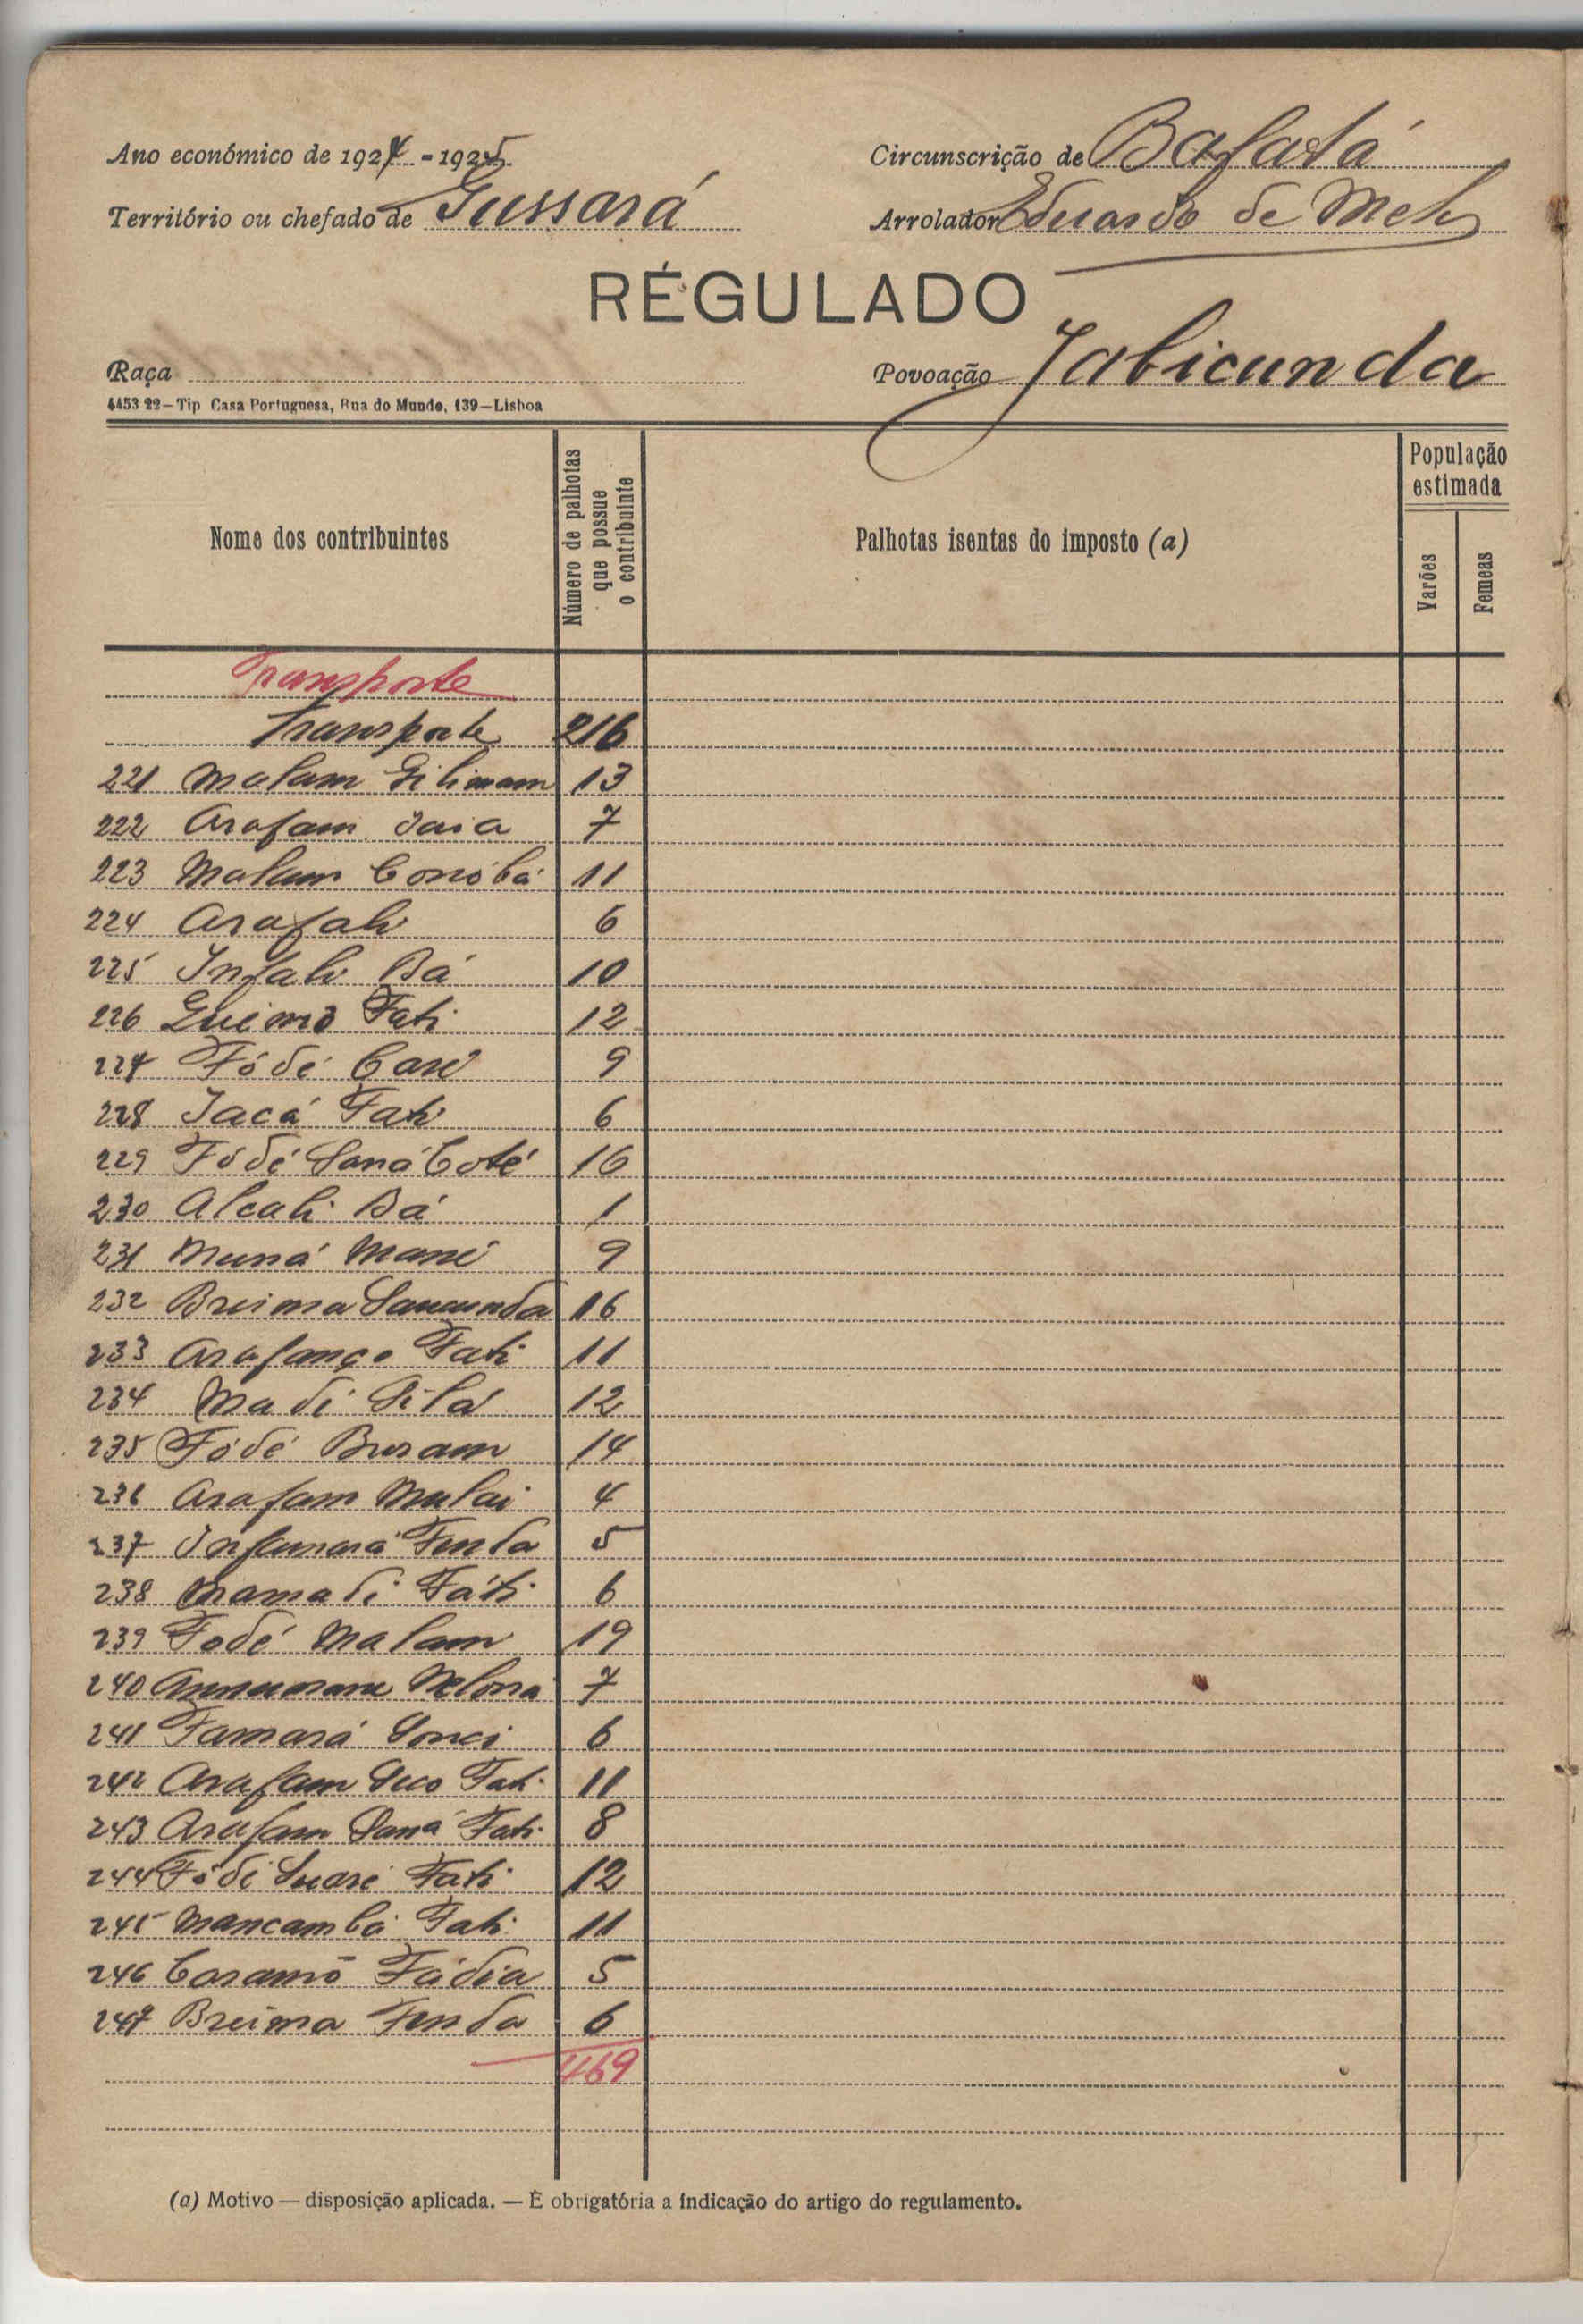 Ano económico de 1924 - 1925
Circunscrição de Bafatá
Território ou chefado de Gussará
Arrolador Eduardo de Melo
RÉGULADO
Raça
Povoação Jabicunda
4453 22—Tip Casa Portuguesa, Rua do Mundo, 139—Lisboa
Nome dos contribuintes
Número de palhotas que possue o contribuinte
Palhotas isentas do imposto (a)
População estimada
Varões
Femeas
Transporte
Transporte 216
221 Malam Gilimam 13
222 Arafam Jaia 7
223 Malam Conobá 11
224 Arafali 6
225 Infali Bá 10
226 Quemó Fati 12
227 Fódé 9
228 Jacá Fati 6
229 Fódé Saná Coté 16
230 Alcali Bá 1
231 Muná Mané 9
232 Breima 16
233 Arafanço Fati 11
234 Madi Silá 12
235 Fódé Buram 14
236 Arafam Malai 4
237 Infamará 5
238 Mamadi Fáti 6
239 Fodé Malam 19
240 7
241 Famará Sonci 6
242 Arafam Fati 11
243 Arafam Saná Fati 8
244 Fódé Suaré Fati 12
245 Mancambá Fati 11
246 Caramó Fádia 5
247 Breima 6
469
(a) Motivo — disposição aplicada. — É obrigatória a indicação do artigo do regulamento.